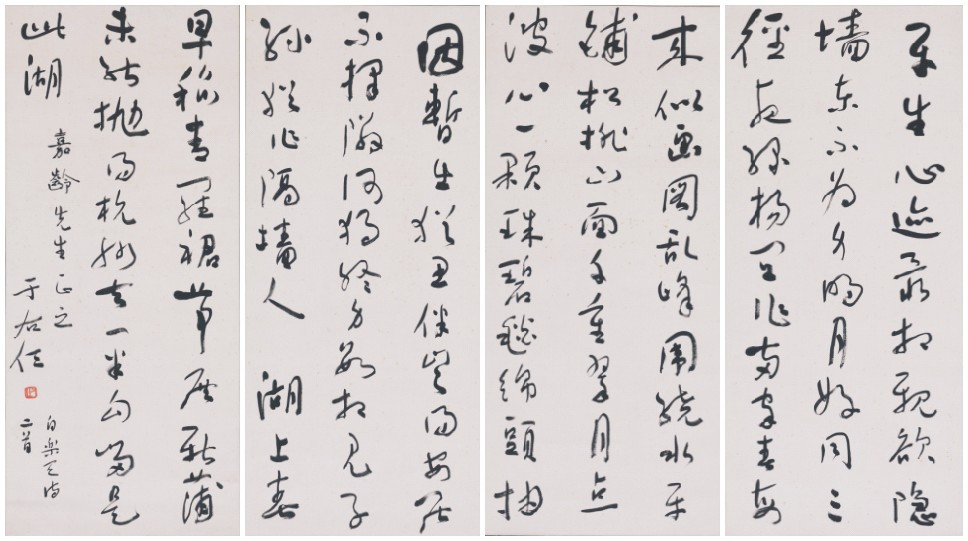 平生心迹最相親欲隐
墙東不为身明月好同三
徑夜綠楊宜作兩家春每
因暫出犹思伴豈得安居
不擇隣何獨終身數相見子
孫犹作隔墙人 湖上春
来似画图乱峰围繞水平
铺松排山面千重翠月点
波心一顆珠碧毯綫頭抽
早稻青羅裙帶展新蒲
未能抛得杭州去一半勾留是
此湖
嘉齡先生正之
于右任
白樂天诗
二首